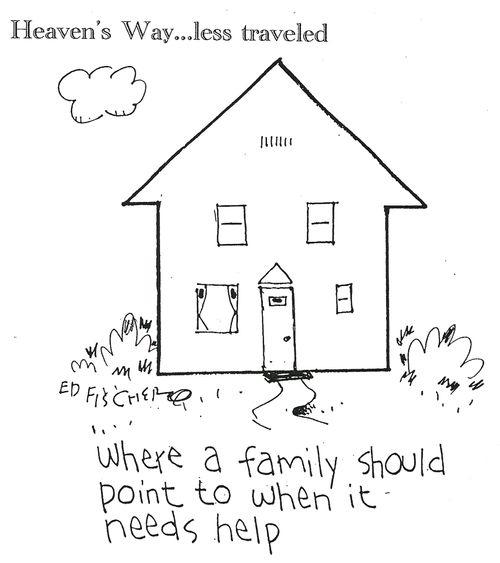 Heaven's Way...less traveled
ED FISCHER
where a family should
point to when it
needs help